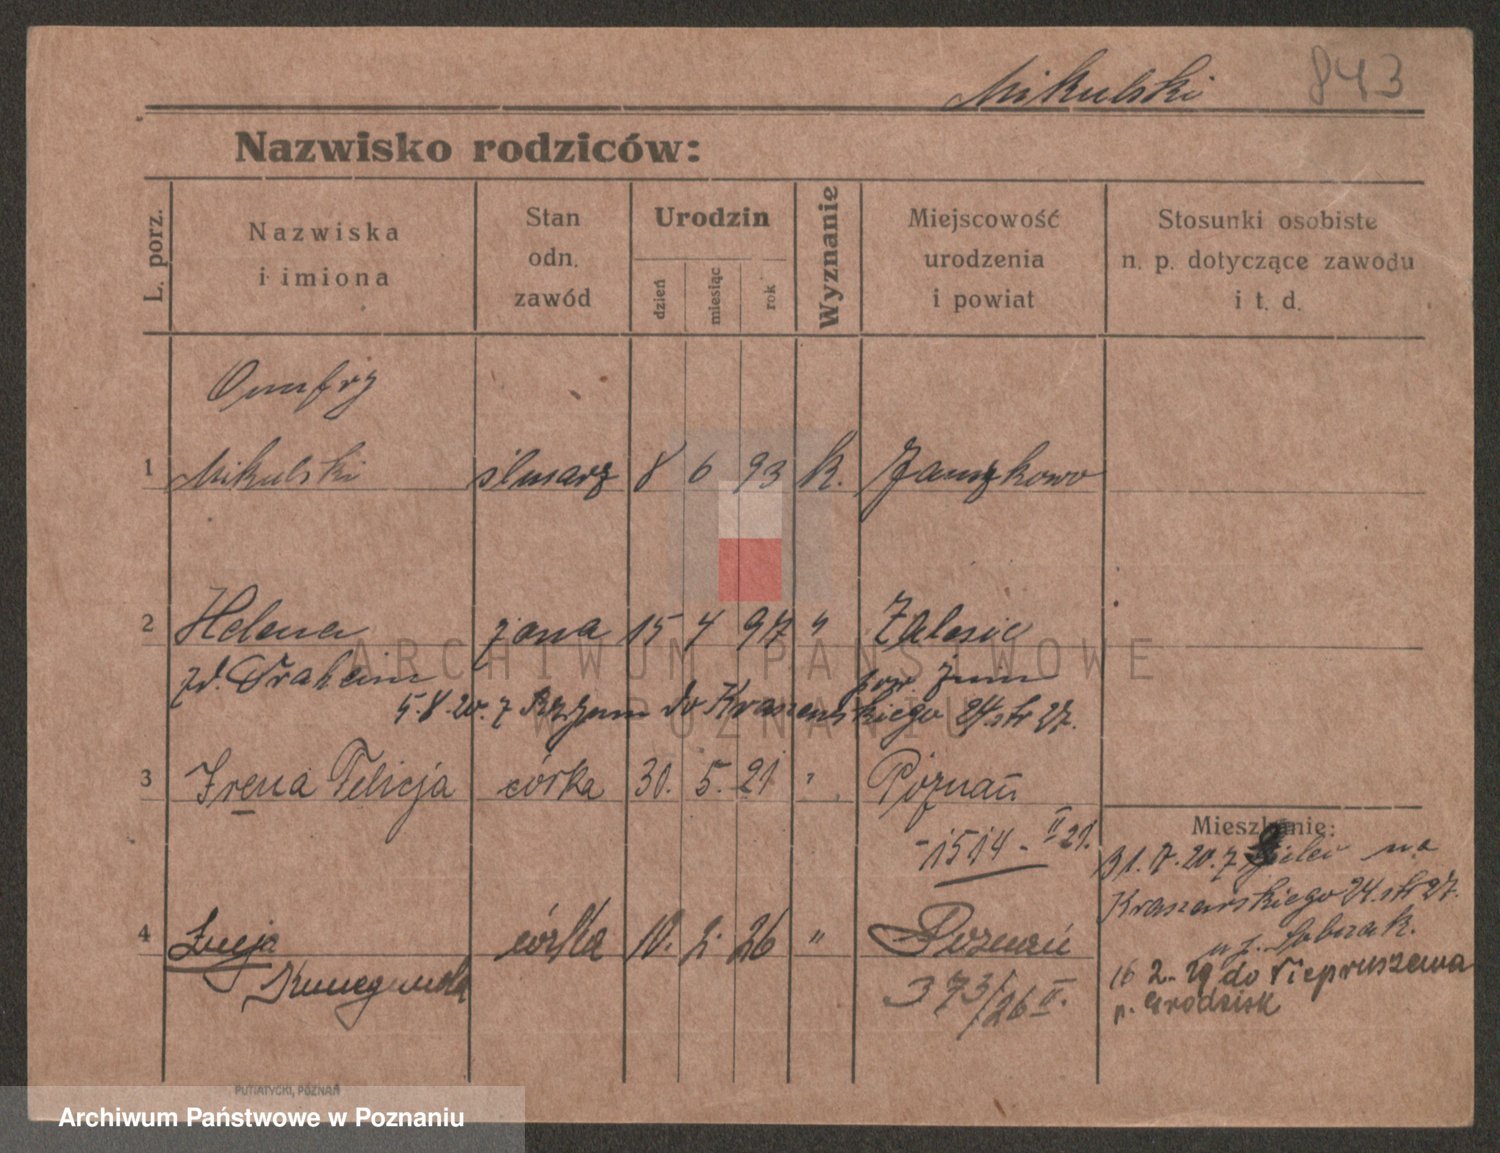 Mikulski 843
Nazwisko rodziców:
L. porz.
Nazwiska
i imiona
Stan
odn.
zawód
Urodzin
dzień
miesiąc
rok
Wyznanie
Miejscowość
urodzenia
i powiat
Stosunki osobiste
n. p. dotyczące zawodu
i t. d.
Onufry
1 Mikulski ślusarz 8 6 93 k. Januszkowo
2 Helena żona 15 4 97 " Zalesie
zd. pow. Żnin
5.8.20. z do Kraszewskiego 24 str 27.
3 Irena Felicja córka 30. 5. 21 " Poznań
-1514- II 21.
Mieszkanie:
31. 7. 20. z na
Kraszewskiego 24. str 27.
u J. Sobczak.
4 Łucja córka 10. 2. 26 " Poznań
Kunegunda
373/26 II.
16 2- 29 do Niepruszewa
p. Grodzisk
PUTIATYCKI, POZNAŃ
ARCHIWUM PAŃSTWOWE
W POZNANIU
Archiwum Państwowe w Poznaniu